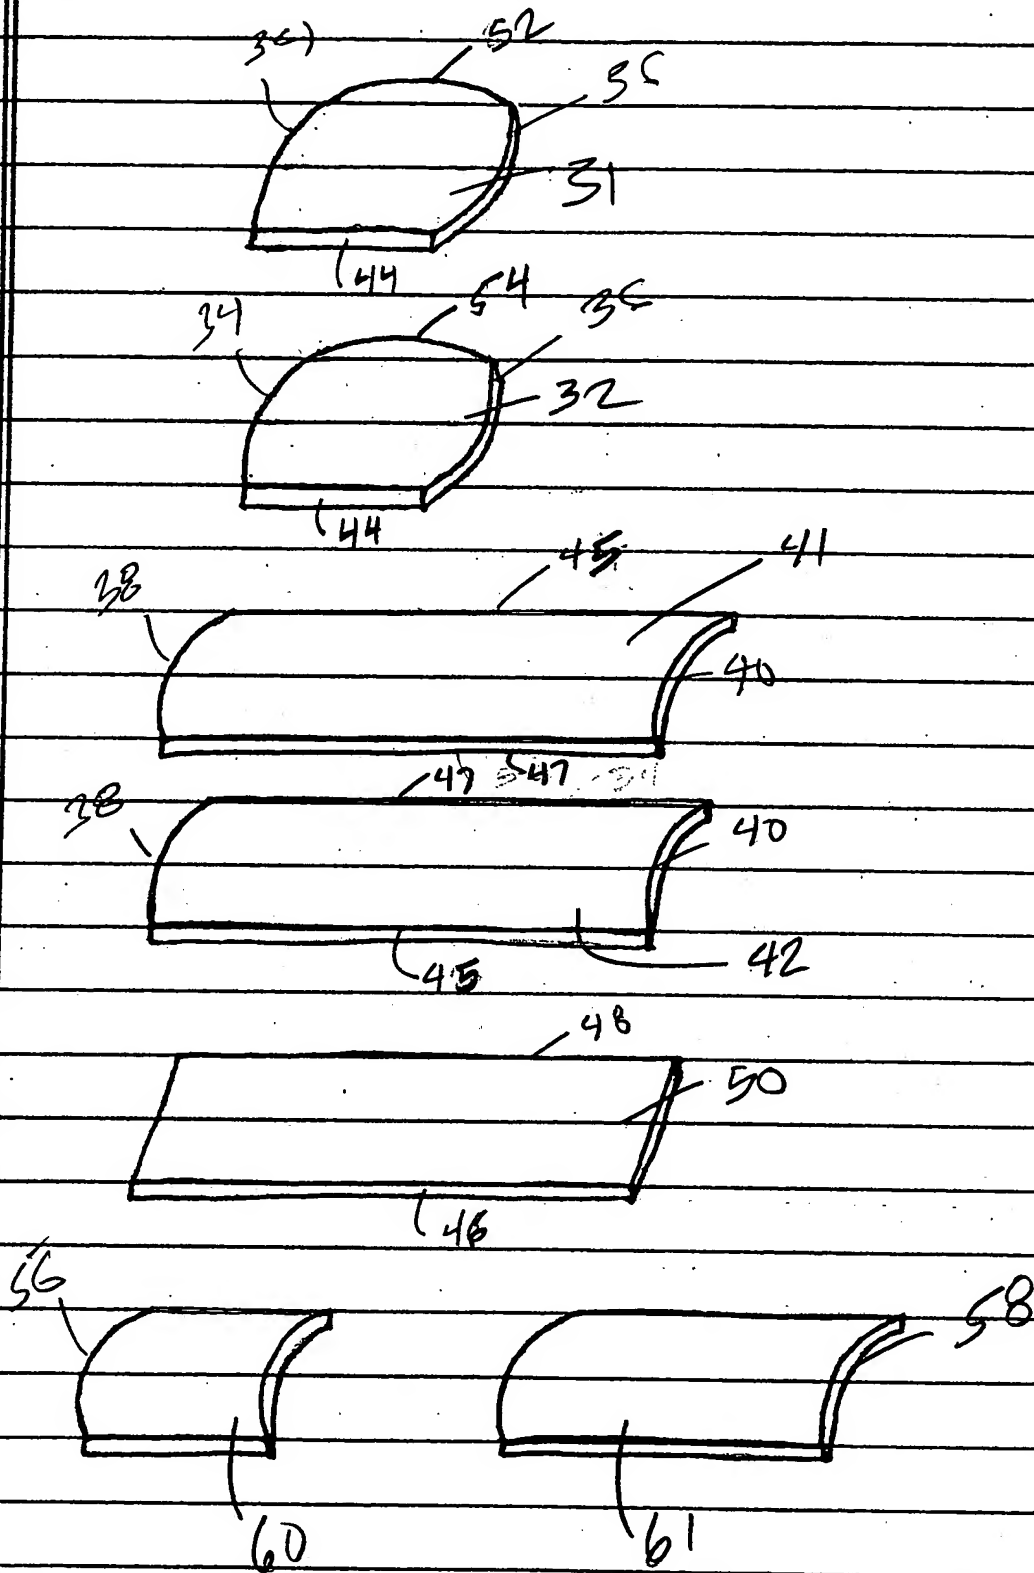 52
36
31
44
34
54
36
32
44
38
45
41
40
47
47
38
40
45
42
48
50
46
56
58
60
61